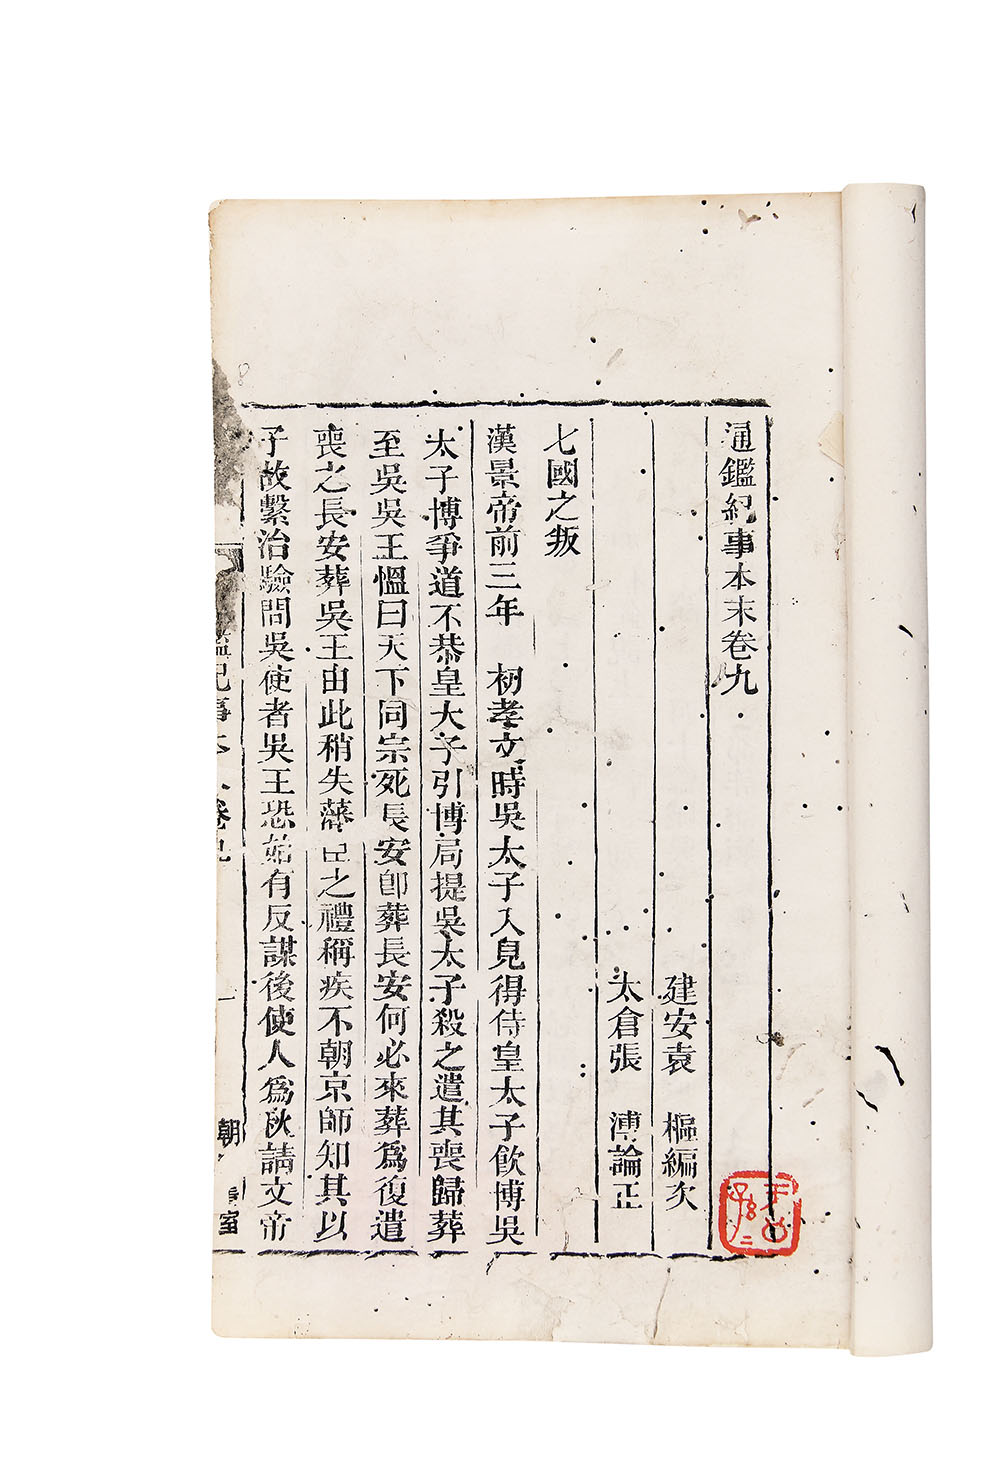 通鑑紀事本末卷九
建安袁　樞編次
太倉張　溥論正
七國之叛
漢景帝前三年　初孝文時吳太子入見得侍皇太子飲博吳
太子博爭道不恭皇太子引博局提吳太子殺之遣其喪歸葬
至吳吳王慍曰天下同宗死長安卽葬長安何必來葬爲復遣
喪之長安葬吳王由此稍失藩臣之禮稱疾不朝京師知其以
子故繫治驗問吳使者吳王恐始有反謀後使人爲秋請文帝
鑑紀事本末卷九
一
朝宗書室